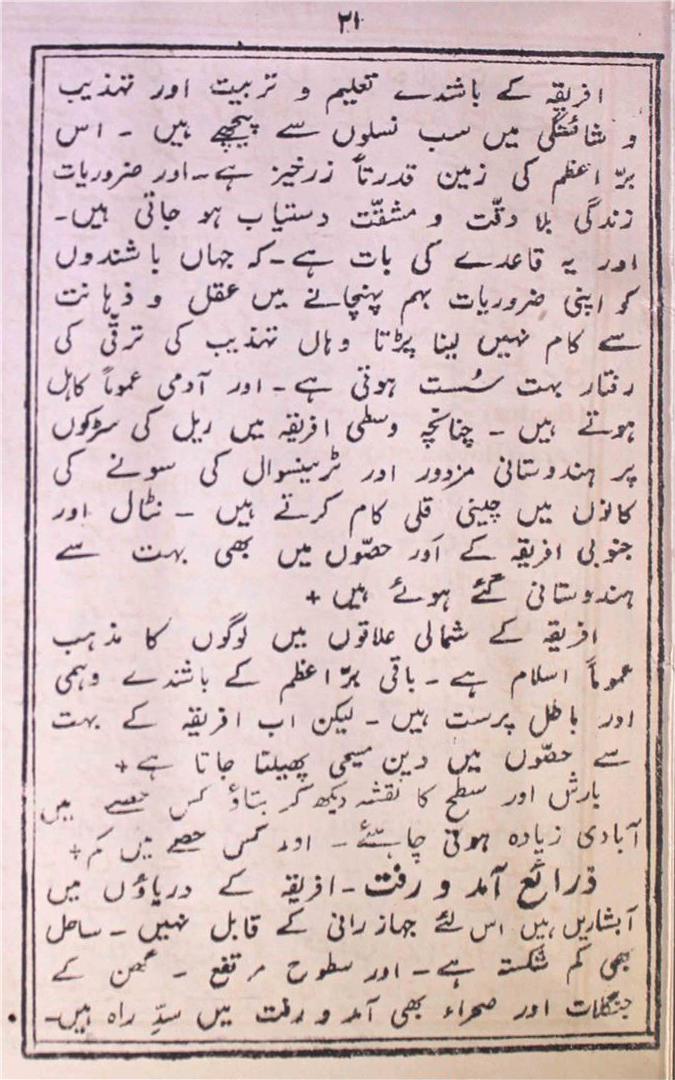 ۲۱
افریقہ کے باشندے تعلیم و تربیت اور تہذیب
و شائستگی میں سب نسلوں سے پیچھے ہیں ۔ اس
برّاعظم کی زمین قدرتاً زرخیز ہے۔ اور ضروریات
زندگی بلا دقّت و مشقّت دستیاب ہو جاتی ہیں۔
اور یہ قاعدے کی بات ہے۔ کہ جہاں باشندوں
کو اپنی ضروریات بہم پہنچانے میں عقل و ذہانت
سے کام نہیں لینا پڑتا وہاں تہذیب کی ترقّی کی
رفتار بہت سُست ہوتی ہے۔ اور آدمی عموماً کاہل
ہوتے ہیں ۔ چنانچہ وسطی افریقہ میں ریل کی سڑکوں
پر ہندوستانی مزدور اور ٹرینسوال کی سونے کی
کانوں میں چینی قلی کام کرتے ہیں ۔ نٹال اور
جنوبی افریقہ کے اَور حصّوں میں بھی بہت سے
ہندوستانی گئے ہوئے ہیں +
افریقہ کے شمالی علاقوں میں لوگوں کا مذہب
عموماً اسلام ہے ۔ باقی برّاعظم کے باشندے وہمی
اور باطل پرست ہیں ۔ لیکن اب افریقہ کے بہت
سے حصّوں میں دین مسیحی پھیلتا جاتا ہے +
بارش اور سطح کا نقشہ دیکھ کر بتاؤ کس حصے میں
آبادی زیادہ ہونی چاہئے ۔ اور کس حصے میں کم +
ذرائع آمد و رفت ۔ افریقہ کے دریاؤں میں
آبشاریں ہیں اس لئے جہازرانی کے قابل نہیں ۔ ساحل
بھی کم شکستہ ہے ۔ اور سطوح مرتفع ۔ گھن کے
جنگلات اور صحراء بھی آمد و رفت میں سدِّ راہ ہیں۔